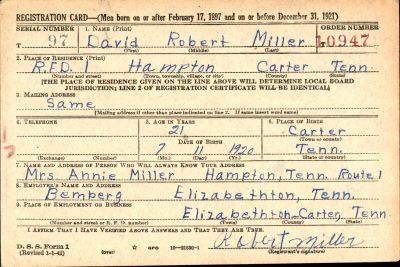 REGISTRATION CARD—(Men born on or after February 17, 1897 and on or before December 31, 1921)
SERIAL NUMBER 1. NAME (Print) ORDER NUMBER
T 97 David Robert Miller 10947
(First) (Middle) (Last)
2. PLACE OF RESIDENCE (Print)
R.F.D. 1 Hampton Carter Tenn.
(Number and street) (Town, township, village, or city) (County) (State)
[THE PLACE OF RESIDENCE GIVEN ON THE LINE ABOVE WILL DETERMINE LOCAL BOARD
JURISDICTION; LINE 2 OF REGISTRATION CERTIFICATE WILL BE IDENTICAL]
3. MAILING ADDRESS
Same
[Mailing address if other than place indicated on line 2. If same insert word same]
4. TELEPHONE 5. AGE IN YEARS 6. PLACE OF BIRTH
21 Carter
DATE OF BIRTH (Town or county)
7 11 1920 Tenn.
(Exchange) (Number) (Mo.) (Day) (Yr.) (State or country)
7. NAME AND ADDRESS OF PERSON WHO WILL ALWAYS KNOW YOUR ADDRESS
Mrs. Annie Miller Hampton, Tenn. Route 1
8. EMPLOYER'S NAME AND ADDRESS
Bemberg Elizabethton, Tenn.
9. PLACE OF EMPLOYMENT OR BUSINESS
Elizabethton-Carter, Tenn
(Number and street or R. F. D. number) (Town) (County) (State)
I AFFIRM THAT I HAVE VERIFIED ABOVE ANSWERS AND THAT THEY ARE TRUE.
D. S. S. Form 1
(Revised 1-1-42) GPO 16—21630-1 Robert Miller
(Registrant's signature)